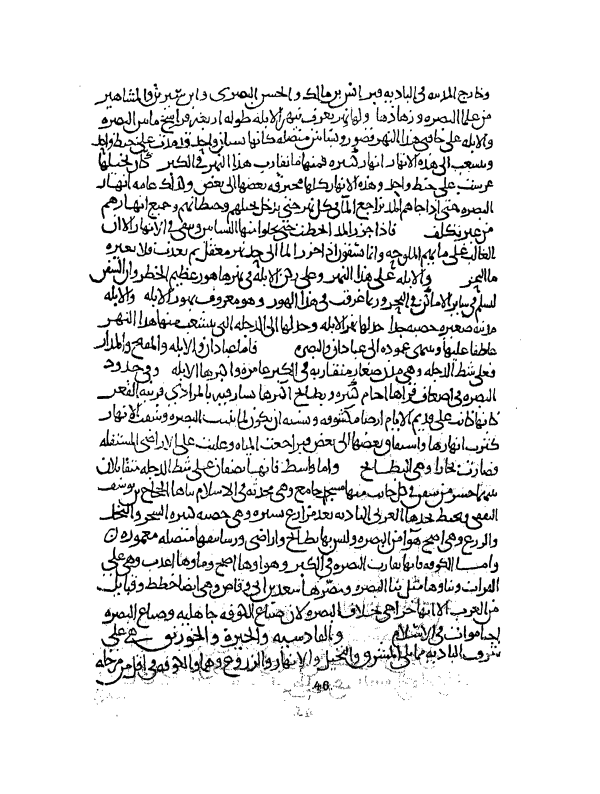 وخارج المدينة في البادية قبر انس بن مالك والحسن البصري وابن سيرين والمشاهير
من علما البصره وزهادها ولها نهر يعرف بنهر الابله طوله اربعة فراسخ ما بين البصره
والابله على حافتي هذا النهر قصور وبساتين متصله كانها بستان واحد قد مدت على خيط واحد
وينشعب الى هذه الانهار انهار كثيره فمنها ما يقارب هذا النهر في الكبر وكأن نخيلها
غرست على خط واحد وهذه الانهار كلها مخترقه بعضها الى بعض وكذلك عامه انهار
البصره حتى اذا جاهم المد تراجع الما في كل نهر حتى يدخل نخيلهم وحيطانهم وجميع انهارهم
من غير تكلف فاذا جزر الما انحطت حتى تخلوا منها البساتين وتبقى في الانهار الا ان
الغالب على مايهم الملوحه وانما يستقون اذا جزر الما الى حد نهر معقل ثم يعذب فلا يضره
ما البحر والابله على هذا النهر وعلى ركن الابله في نهرها هور عظيم الخطر وان السفن
لتسلم في ساير الاماكن في البحر وربما غرقت في هذا الهور وهو معروف بهور الابله والابله
مدينه صغيره خصبه جدا حد لها نهر الابله وحد لها الى الدجله التي يتشعب منها هذا النهر
عاطفا عليها وينتهي عموده الى عبادان والبصره فاما عبادان والابله والمفتح والمذار
فعلى شط الدجله وهي مدن صغار متقاربه في الكبر عامره واكبرها الابله وفي حدود
البصره في اضعاف قراها اجام كثيره وبطايح اكثرها يسار فيه بالمرادي قريبه القعر
كانها كانت على قديم الايام ارضا مكشوفه ويشبه ان يكون لما بنيت البصره وشقت الانهار
كثرت انهارها واستغاق بعضها الى بعض فتراجعت المياه وغلبت على الاراضي المتسفله
فصارت بحارا وهي البطايح واما واسط فانها نصفان على شط الدجله متقابلان
بينهما جسر من سفن في كل جانب منهما مسجد جامع وهي محدثه في الاسلام بناها الحجاج بن يوسف
الثقفي ويحيط بحدها الغربي الباديه بعد مزارع يسيره وهي خصبه كثيره الشجر والنخل
والزرع وهي اصح هوآ من البصره وليس بها بطايح واراضي ورساتيقها متصله معموره
واما الكوفه فانها تقارب البصره في الكبر وهواوها اصح وماوها اعذب وهي على
الفرات وبناوها مثل بنا البصره ومصرها سعد بن ابي وقاص وهي ايضا خطط وقبايل
من العرب الا انها خراجيه بخلاف البصره لان ضياع الكوفه جاهليه وضياع البصره
احيا موات في الاسلام والقادسيه والحيره والخورنق هي على
شرف الباديه مما يلي المشرق والنخيل والانهار والزروع وهما والكوفه في اقل من مرحله
46